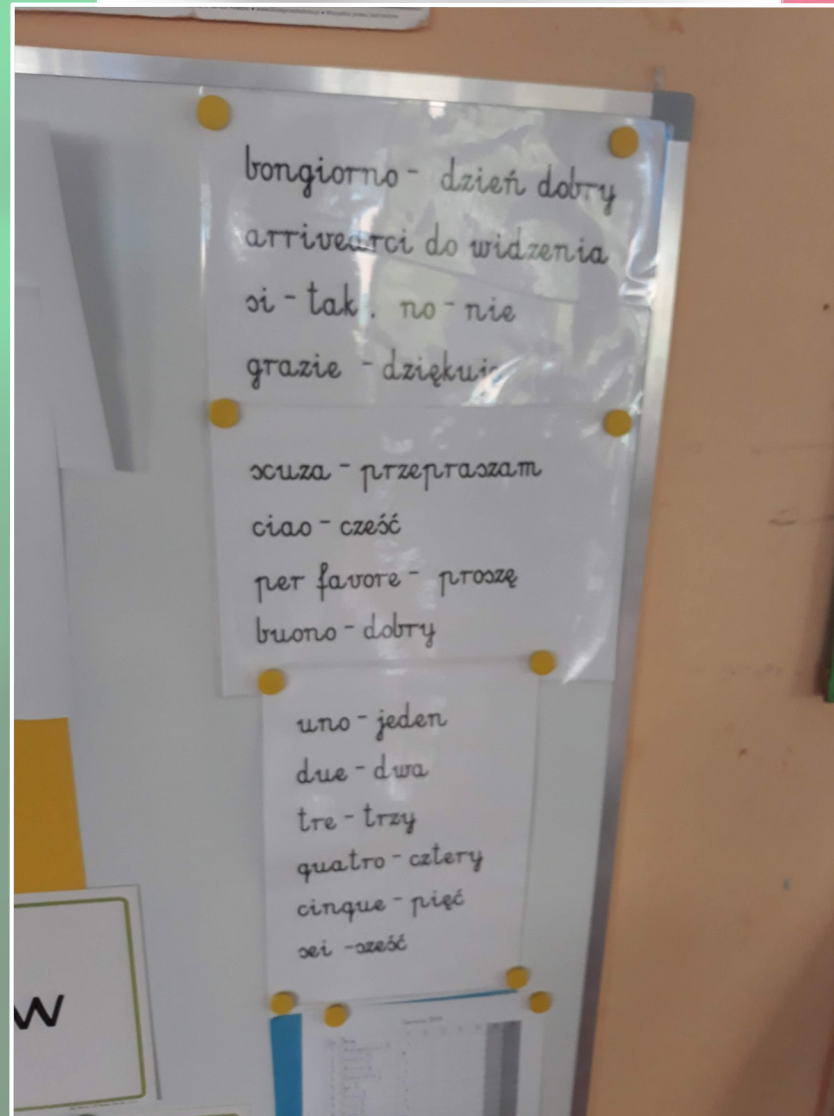 bongiorno - dzień dobry
arrivearci do widzenia
si - tak. no - nie
grazie - dziękuję
scuza - przepraszam
ciao - cześć
per favore - proszę
buono - dobry
uno - jeden
due - dwa
tre - trzy
quatro - cztery
cinque - pięć
sei - sześć
w